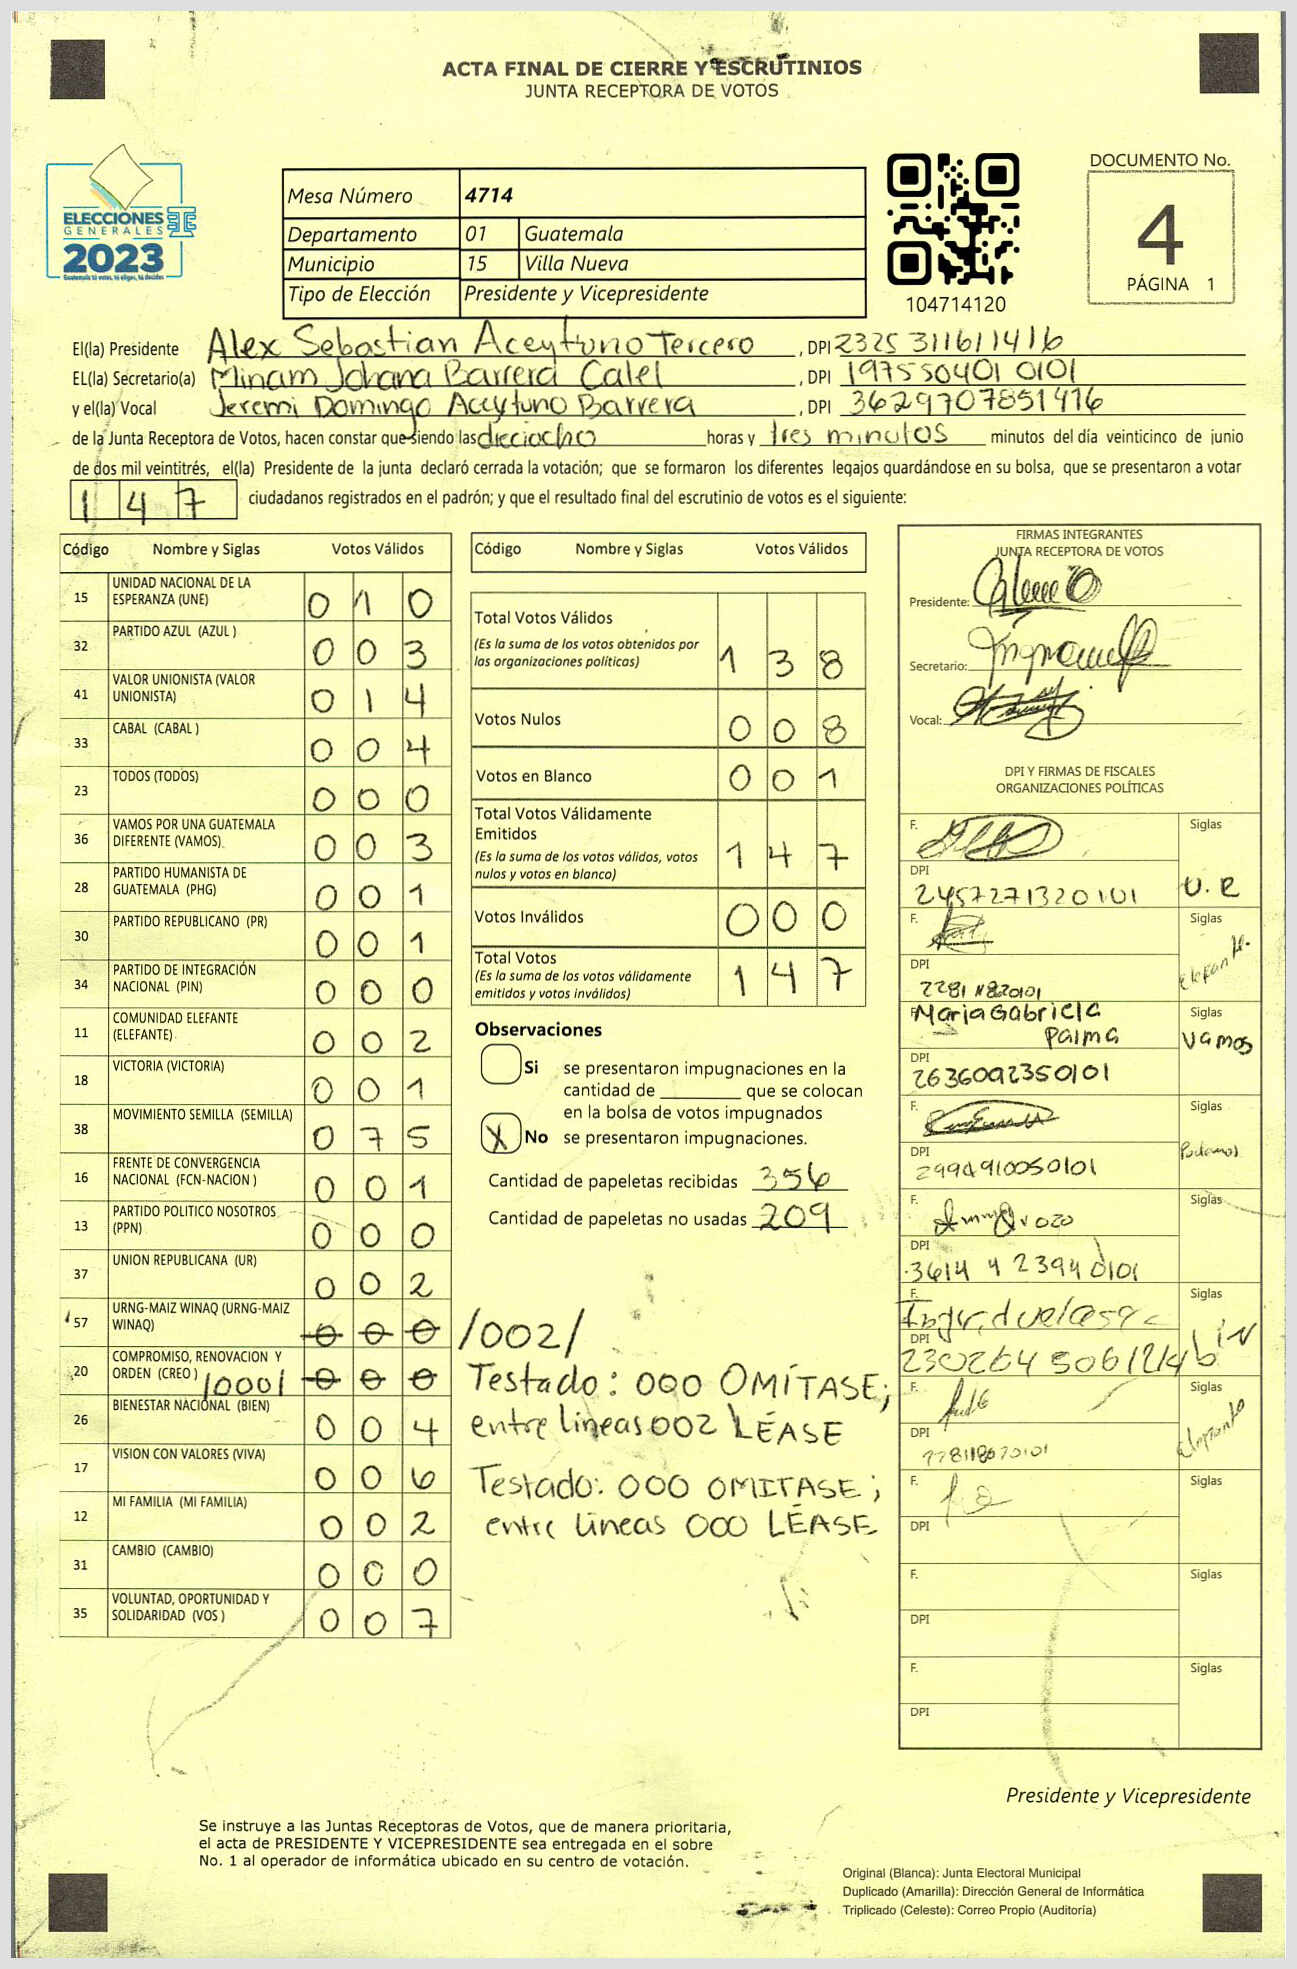 ACTA FINAL DE CIERRE Y ESCRUTINIOS
JUNTA RECEPTORA DE VOTOS
ELECCIONES
GENERALES
2023
Guatemala tú votas, tú eliges, tú decides
Mesa Número 4714
Departamento 01 Guatemala
Municipio 15 Villa Nueva
Tipo de Elección Presidente y Vicepresidente
104714120
DOCUMENTO No.
4
PÁGINA 1
El(la) Presidente Alex Sebastian Aceytuno Tercero , DPI 2325 311611416
EL(la) Secretario(a) Miriam Johana Barrera Calel , DPI 197550401 0101
y el(la) Vocal Jeremi Domingo Aceytuno Barrera , DPI 3629707851416
de la Junta Receptora de Votos, hacen constar que siendo las dieciocho horas y tres minutos minutos del día veinticinco de junio
de dos mil veintitrés, el(la) Presidente de la junta declaró cerrada la votación; que se formaron los diferentes legajos guardándose en su bolsa, que se presentaron a votar
147 ciudadanos registrados en el padrón; y que el resultado final del escrutinio de votos es el siguiente:
Código Nombre y Siglas Votos Válidos
15 UNIDAD NACIONAL DE LA
ESPERANZA (UNE) 0 1 0
32 PARTIDO AZUL (AZUL ) 0 0 3
41 VALOR UNIONISTA (VALOR
UNIONISTA) 0 1 4
33 CABAL (CABAL ) 0 0 4
23 TODOS (TODOS) 0 0 0
36 VAMOS POR UNA GUATEMALA
DIFERENTE (VAMOS) 0 0 3
28 PARTIDO HUMANISTA DE
GUATEMALA (PHG) 0 0 1
30 PARTIDO REPUBLICANO (PR) 0 0 1
34 PARTIDO DE INTEGRACIÓN
NACIONAL (PIN) 0 0 0
11 COMUNIDAD ELEFANTE
(ELEFANTE) 0 0 2
18 VICTORIA (VICTORIA) 0 0 1
38 MOVIMIENTO SEMILLA (SEMILLA) 0 7 5
16 FRENTE DE CONVERGENCIA
NACIONAL (FCN-NACION ) 0 0 1
13 PARTIDO POLITICO NOSOTROS
(PPN) 0 0 0
37 UNION REPUBLICANA (UR) 0 0 2
57 URNG-MAIZ WINAQ (URNG-MAIZ
WINAQ) 0 0 0 /002/
20 COMPROMISO, RENOVACION Y
ORDEN (CREO ) /000/ 0 0 0
26 BIENESTAR NACIONAL (BIEN) 0 0 4
17 VISION CON VALORES (VIVA) 0 0 6
12 MI FAMILIA (MI FAMILIA) 0 0 2
31 CAMBIO (CAMBIO) 0 0 0
35 VOLUNTAD, OPORTUNIDAD Y
SOLIDARIDAD (VOS ) 0 0 7
Código Nombre y Siglas Votos Válidos
Total Votos Válidos
(Es la suma de los votos obtenidos por
las organizaciones políticas) 1 3 8
Votos Nulos 0 0 8
Votos en Blanco 0 0 1
Total Votos Válidamente
Emitidos
(Es la suma de los votos válidos, votos
nulos y votos en blanco) 1 4 7
Votos Inválidos 0 0 0
Total Votos
(Es la suma de los votos válidamente
emitidos y votos inválidos) 1 4 7
Observaciones
Si se presentaron impugnaciones en la
cantidad de ________ que se colocan
en la bolsa de votos impugnados
X No se presentaron impugnaciones.
Cantidad de papeletas recibidas 356
Cantidad de papeletas no usadas 209
Testado: 000 OMÍTASE;
entre lineas 002 LÉASE
Testado: 000 OMITASE;
entre lineas 000 LÉASE
FIRMAS INTEGRANTES
JUNTA RECEPTORA DE VOTOS
Presidente:
Secretario:
Vocal:
DPI Y FIRMAS DE FISCALES
ORGANIZACIONES POLÍTICAS
F. Siglas
DPI 2457271320101 U.R
F. Siglas
DPI Elefante
F. Maria Gabriela Siglas
Palma Vamos
DPI 2636092350101
F. Siglas
DPI 2994910050101 Podemos
F. Siglas
DPI 3614 4 23940101
F. Siglas
DPI
F. Siglas
DPI Elefante
F. Siglas
DPI
F. Siglas
DPI
F. Siglas
DPI
Presidente y Vicepresidente
Se instruye a las Juntas Receptoras de Votos, que de manera prioritaria,
el acta de PRESIDENTE Y VICEPRESIDENTE sea entregada en el sobre
No. 1 al operador de informática ubicado en su centro de votación.
Original (Blanca): Junta Electoral Municipal
Duplicado (Amarilla): Dirección General de Informática
Triplicado (Celeste): Correo Propio (Auditoría)